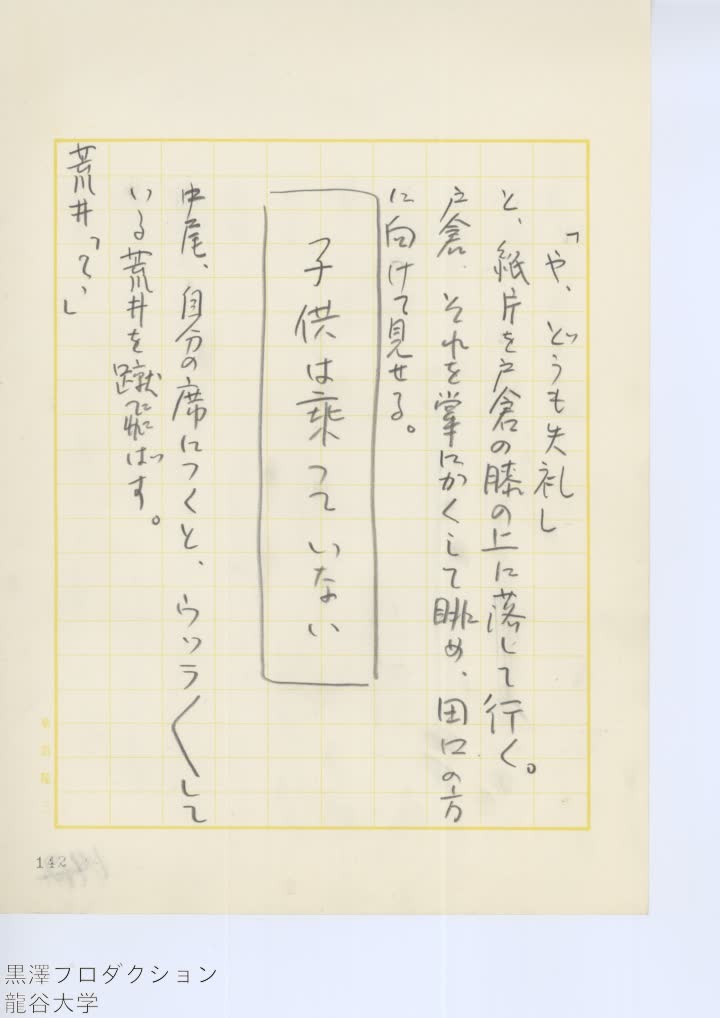 「や、どうも失礼し
と、紙片を戸倉の膝の上に落して行く。
戸倉、それを掌にかくして眺め、田口の方
に向けて見せる。
子供は乗っていない
中尾、自分の席につくと、ウツラ〱して
いる荒井を蹴飛ばす。
荒井「？」
142
黒澤プロダクション
龍谷大学